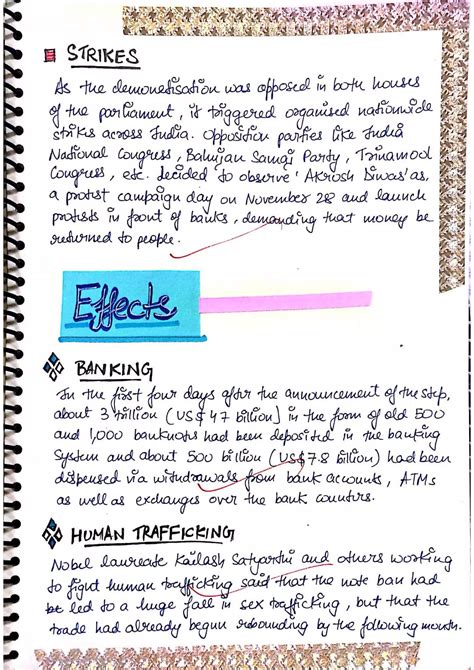 STRIKES
As the demonetisation was opposed in both houses
of the parliament, it triggered organised nationwide
strikes across India. Opposition parties like India
National Congress, Bahujan Samaj Party, Trinamool
Congress, etc. decided to observe 'Akrosh Diwas' as,
a protest campaign day on November 28 and launch
protests in front of banks, demanding that money be
returned to people.
Effects
BANKING
In the first four days after the announcement of the step,
about 3 trillion (US$ 47 billion) in the form of old 500
and 1,000 banknotes had been deposited in the banking
system and about 500 billion (US$ 7.8 billion) had been
dispensed via withdrawals from bank accounts, ATMs
as well as exchanges over the bank counters.
HUMAN TRAFFICKING
Nobel laureate Kailash Satyarthi and others working
to fight human trafficking said that the note ban had
be led to a huge fall in sex trafficking, but that the
trade had already begun rebounding by the following month.